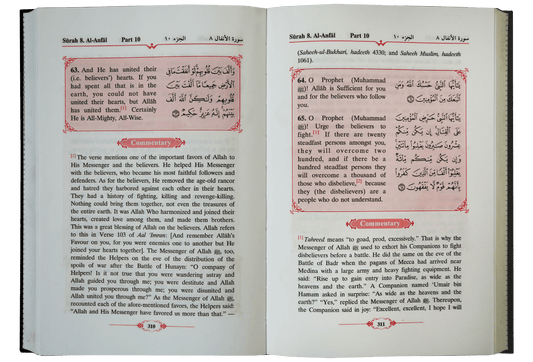 Sûrah 8. Al-Anfâl Part 10 الجزء ١٠ سورة الأنفال ٨
63. And He has united their
(i.e. believers') hearts. If you
had spent all that is in the
earth, you could not have
united their hearts, but Allâh
has united them.[1] Certainly
He is All-Mighty, All-Wise.
وَأَلَّفَ بَيْنَ قُلُوبِهِمْ لَوْ أَنفَقْتَ مَا فِي
الْأَرْضِ جَمِيعًا مَّا أَلَّفْتَ بَيْنَ
قُلُوبِهِمْ وَلَٰكِنَّ اللَّهَ أَلَّفَ
بَيْنَهُمْ إِنَّهُ عَزِيزٌ حَكِيمٌ
Commentary
[1] The verse mentions one of the important favors of Allah to
His Messenger and the believers. He helped His Messenger
with the believers, who became his most faithful followers and
defenders. As for the believers, He removed the age-old rancor
and hatred they harbored against each other in their hearts.
They had a history of fighting, killing and revenge-killing.
Nothing could bring them together, not even the treasures of
the entire earth. It was Allah Who harmonized and joined their
hearts, created love among them, and made them brothers.
This was a great blessing of Allah on the believers. Allah refers
to this in Verse 103 of Aal 'Imran: [And remember Allâh's
Favour on you, for you were enemies one to another but He
joined your hearts together]. The Messenger of Allah ﷺ, too,
reminded the Helpers on the eve of the distribution of the
spoils of war after the Battle of Hunayn: "O company of
Helpers! Is it not true that you were wandering astray and
Allah guided you through me; you were destitute and Allah
made you prosperous through me; you were disunited and
Allah united you through me?" As the Messenger of Allah ﷺ,
recounted each of the afore-mentioned favors, the Helpers said:
"Allah and His Messenger have favored us more than that." —
310
Sûrah 8. Al-Anfâl Part 10 الجزء ١٠ سورة الأنفال ٨
(Saheeh al-Bukhari, hadeeth 4330; and Saheeh Muslim, hadeeth
1061).
64. O Prophet (Muhammad
ﷺ)! Allâh is Sufficient for you
and for the believers who follow
you.
يَا أَيُّهَا النَّبِيُّ حَسْبُكَ اللَّهُ وَمَنِ
اتَّبَعَكَ مِنَ الْمُؤْمِنِينَ
65. O Prophet (Muhammad
ﷺ)! Urge the believers to
fight.[1] If there are twenty
steadfast persons amongst you,
they will overcome two
hundred, and if there be a
hundred steadfast persons they
will overcome a thousand of
those who disbelieve,[2] because
they (the disbelievers) are a
people who do not understand.
يَا أَيُّهَا النَّبِيُّ حَرِّضِ الْمُؤْمِنِينَ
عَلَى الْقِتَالِ إِن يَكُن مِّنكُمْ
عِشْرُونَ صَابِرُونَ يَغْلِبُوا مِائَتَيْنِ
وَإِن يَكُن مِّنكُم مِّائَةٌ
يَغْلِبُوا أَلْفًا مِّنَ الَّذِينَ كَفَرُوا
بِأَنَّهُمْ قَوْمٌ لَّا يَفْقَهُونَ
Commentary
[1] Tahreed means "to goad, prod, excessively." That is why the
Messenger of Allah ﷺ used to exhort his Companions to fight
disbelievers before a battle. He did the same on the eve of the
Battle of Badr when the pagans of Mecca had arrived near
Medina with a large army and heavy fighting equipment. He
said: "Rise up to gain entry into Paradise, as wide as the
heavens and the earth." A Companion named 'Umair bin
Hamam asked in surprise: "As wide as the heavens and the
earth?" "Yes," replied the Messenger of Allah ﷺ. Thereupon,
the Companion said in joy: "Excellent, excellent, I hope I will
311